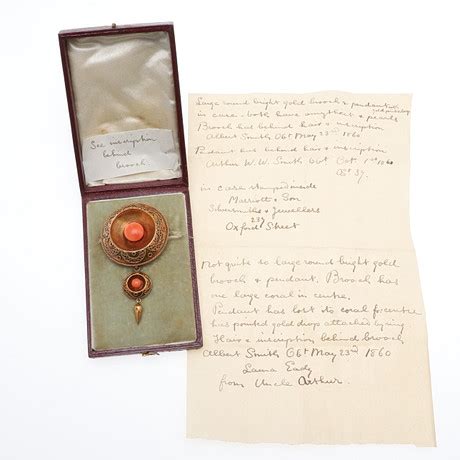 See inscription
behind
brooch.
Large round bright gold brooch & pendant
in case. both have amythest & pearls
Brooch has behind hair & inscription
Albert Smith Obt May 23rd 1860
Pendant has behind hair & inscription
Arthur W. W. Smith Obt Oct 1st 1860
in case stamped inside
Marriott & Son
Silversmiths & Jewellers
Oxford Street
Not quite so large round bright gold
brooch & pendant. Brooch has
one large coral in centre.
Pendant has lost its coral centre
has pointed gold drops attached by ring
Hair & inscription behind brooch
Albert Smith Obt May 23rd 1860
Laura Eady
from Uncle Arthur.